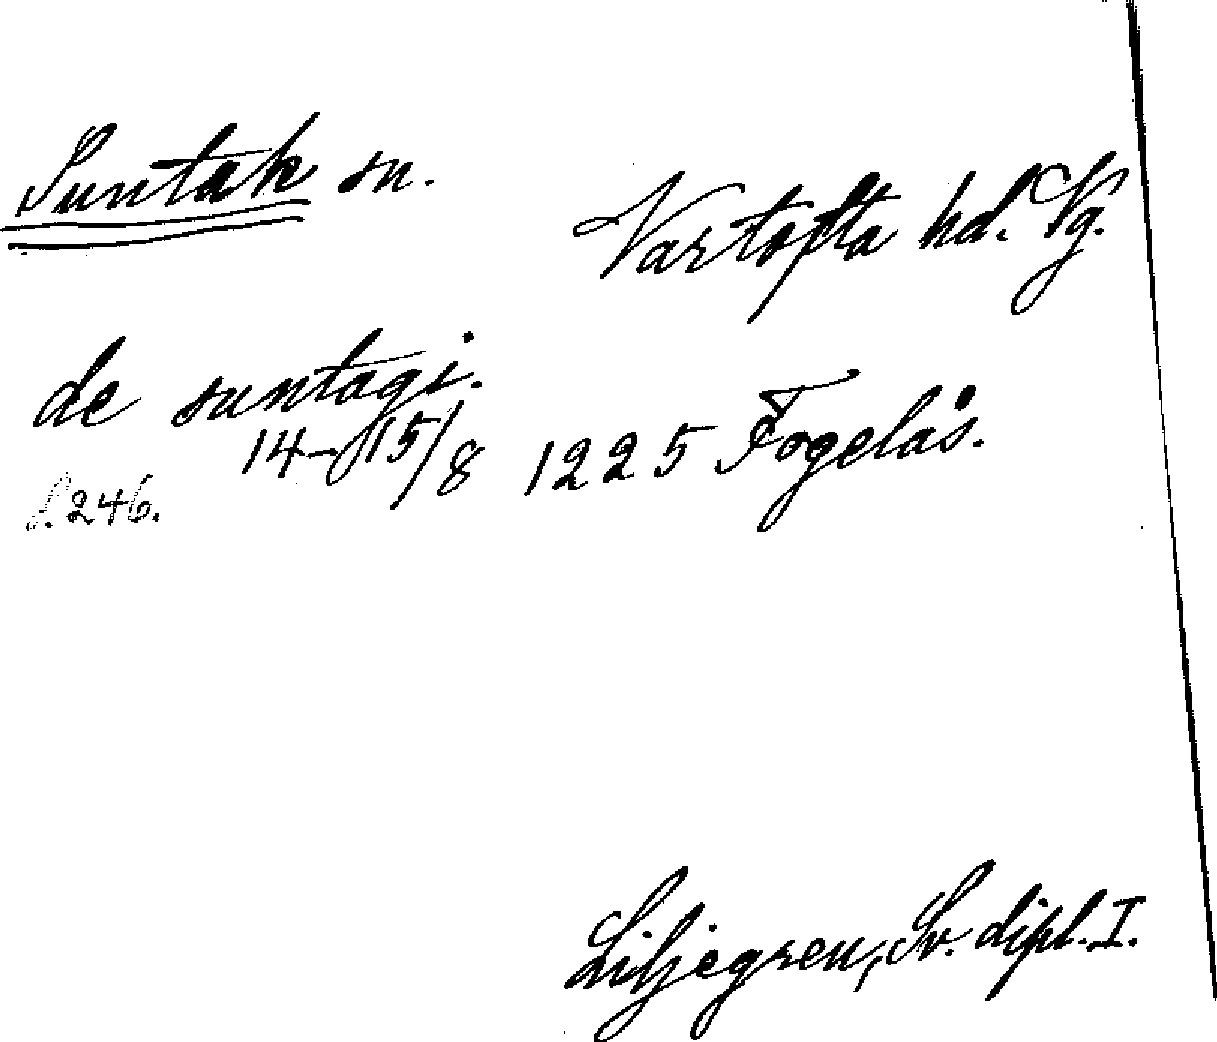 Suntak sn.
Vartofta hd. Vg.
de suntagi.
14-15/8 1225 Fogelås.
s. 246.
Liljegren, Sv. dipl. I.